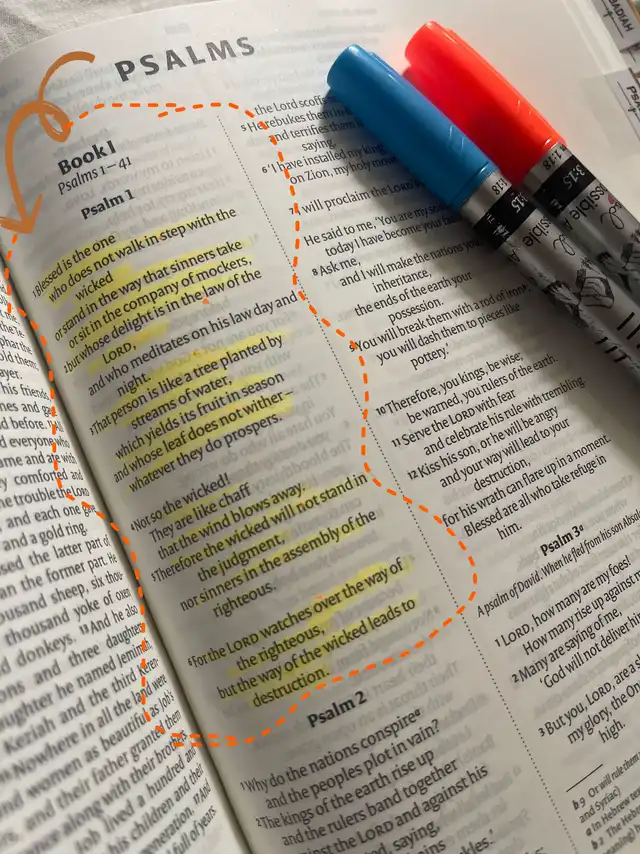 PSALMS
Book I
Psalms 1–41
Psalm 1
1 Blessed is the one
who does not walk in step with the
wicked
or stand in the way that sinners take
or sit in the company of mockers,
2 but whose delight is in the law of the
LORD,
and who meditates on his law day and
night.
3 That person is like a tree planted by
streams of water,
which yields its fruit in season
and whose leaf does not wither –
whatever they do prospers.
4 Not so the wicked!
They are like chaff
that the wind blows away.
5 Therefore the wicked will not stand in
the judgment,
nor sinners in the assembly of the
righteous.
6 For the LORD watches over the way of
the righteous,
but the way of the wicked leads to
destruction.
Psalm 2
1 Why do the nations conspire a
and the peoples plot in vain?
2 The kings of the earth rise up
and the rulers band together
against the LORD and against his
saying,
the Lord scoffs
5 He rebukes them
and terrifies them
saying,
6 'I have installed my king
on Zion, my holy
7 I will proclaim the LORD
He said to me, 'You are my
today I have become your
8 Ask me,
and I will make the nations
inheritance,
the ends of the earth your
possession.
9 You will break them with a rod of iron;
you will dash them to pieces like
pottery.'
10 Therefore, you kings, be wise;
be warned, you rulers of the earth.
11 Serve the LORD with fear
and celebrate his rule with trembling.
12 Kiss his son, or he will be angry
and your way will lead to your
destruction,
for his wrath can flare up in a moment.
Blessed are all who take refuge in
him.
Psalm 3 a
A psalm of David. When he fled from his son
1 LORD, how many are my foes!
How many rise up against
2 Many are saying of me,
'God will not deliver
3 But you, LORD, are a
my glory, the
high.
b 9 Or will rule them
and Syriac)
a In Hebrew
b 2 The
his friends,
before.
everyone who
and ate with
comforted and
the trouble the LORD
and each one
and a gold ring.
the latter part of
than the former part. He
thousand sheep, six
thousand yoke of oxen
donkeys. 13 And he also
and three daughters.
daughter he named Jemimah,
Keziah and the third
15 Nowhere in all the land were
women as beautiful as Job's
and their father granted them
along with their
Job lived a hundred and
his children and their
generation. 17 And
full of years
3:15
4:18
3:15
4:18